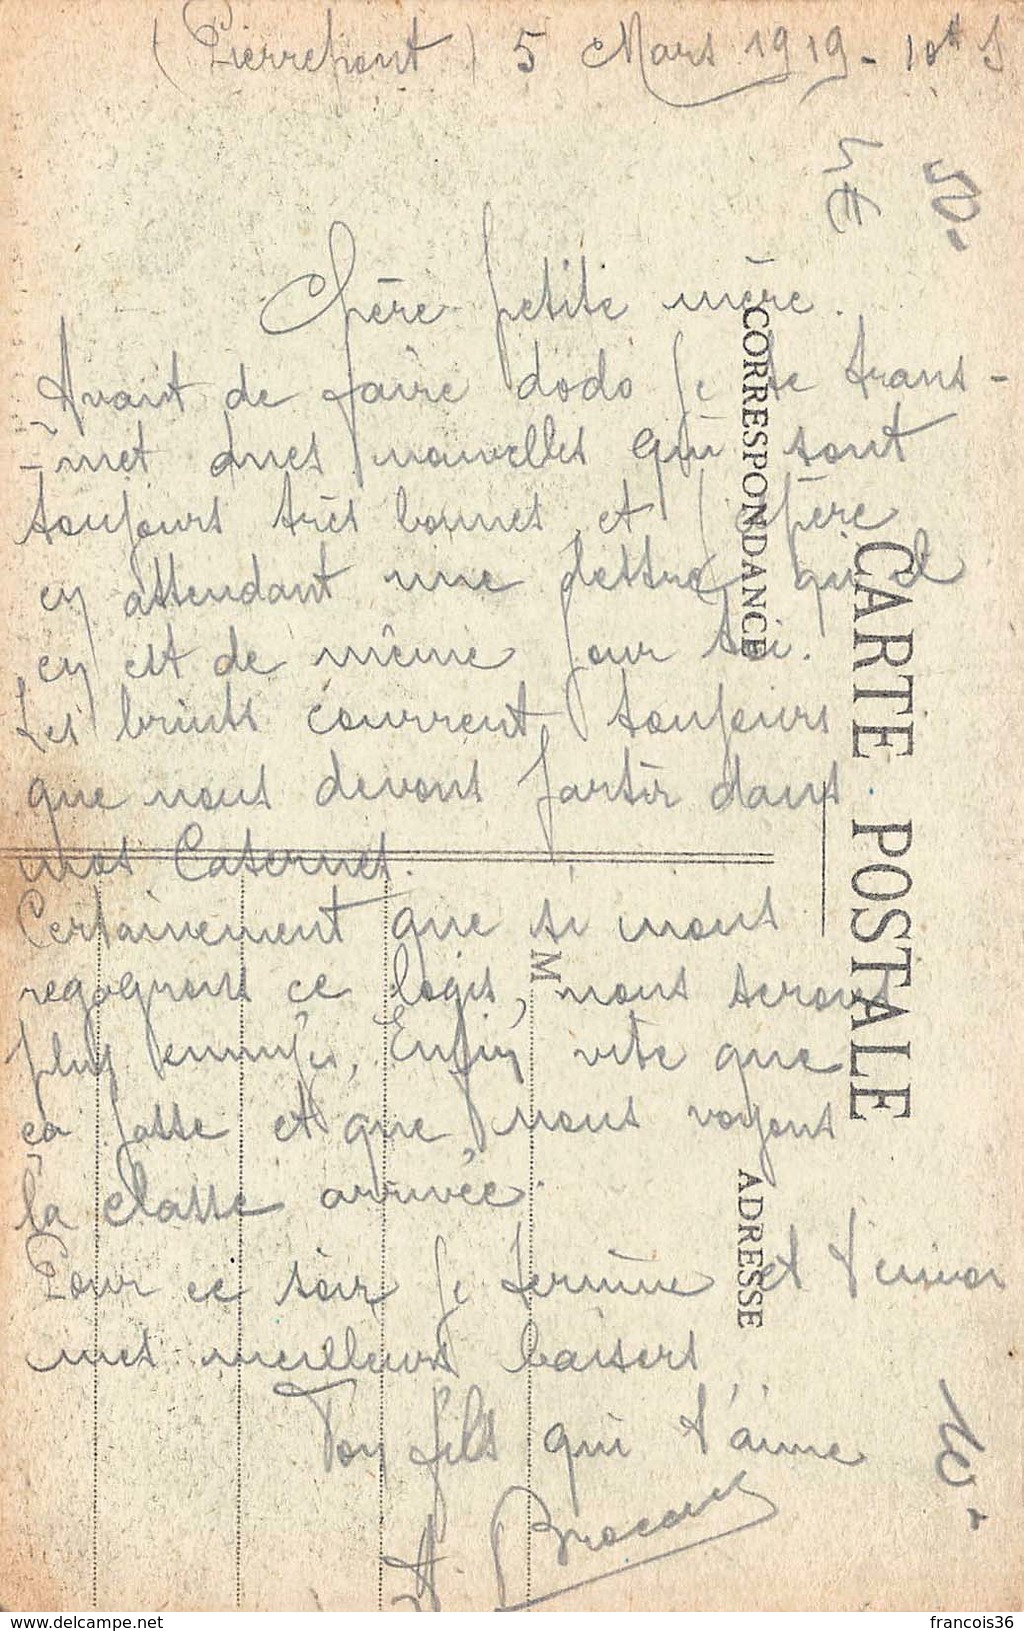 (Pierrepont) 5 Mars 1919 - 10h S
Chère petite mère.
Avant de faire dodo je te trans-
-met mes nouvelles qui sont
toujours très bonnes et j'espère
en attendant une lettre qu'il
en est de même pour toi.
Les bruits courrent toujours
que nous devons partir dans
nos Casernes.
Certainement que si nous
regagnons ce logis, nous serons
plus ennuyés, Enfin vite que
ça passe et que nous voyons
la classe arrivée.
Pour ce soir je termine et t'envoi
mes meilleurs baisers
Ton fils qui t'aime
A.
CARTE POSTALE
CORRESPONDANCE
ADRESSE
M
4€
50-
10-
www.delcampe.net
francois36